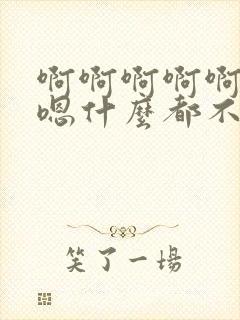 啊啊啊啊啊
嗯什麼都不
笑了一場